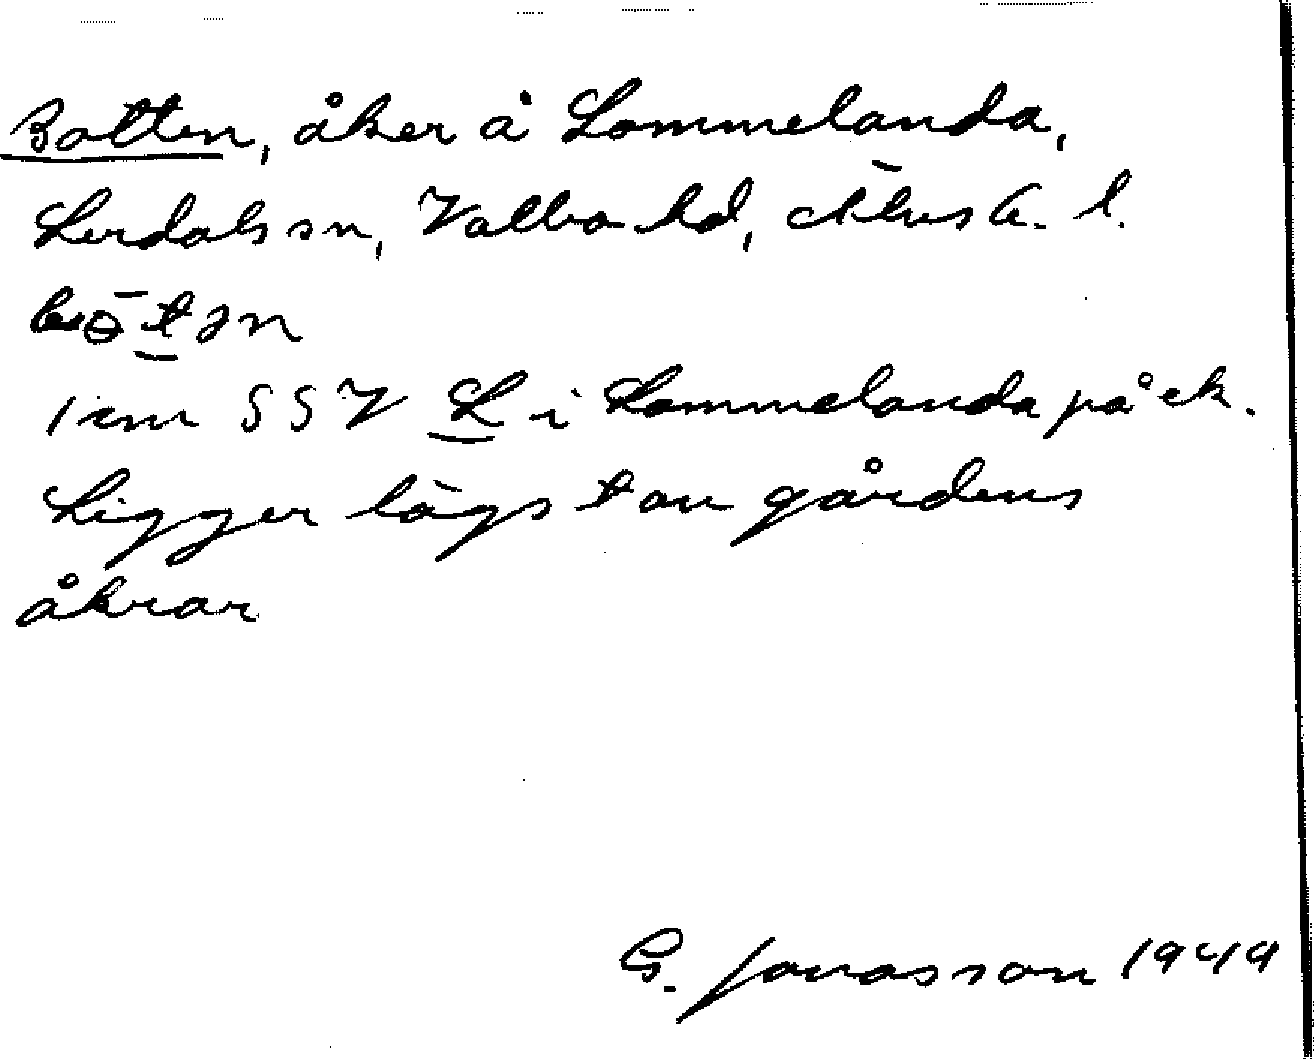 Botten, åker å Lommelanda,
Lerdals sn, Valbo hd, Älvsb. l.
1 cm SSV L i Lommelanda på ek.
Ligger lägst av gårdens
åkrar
G. Jonasson 1949